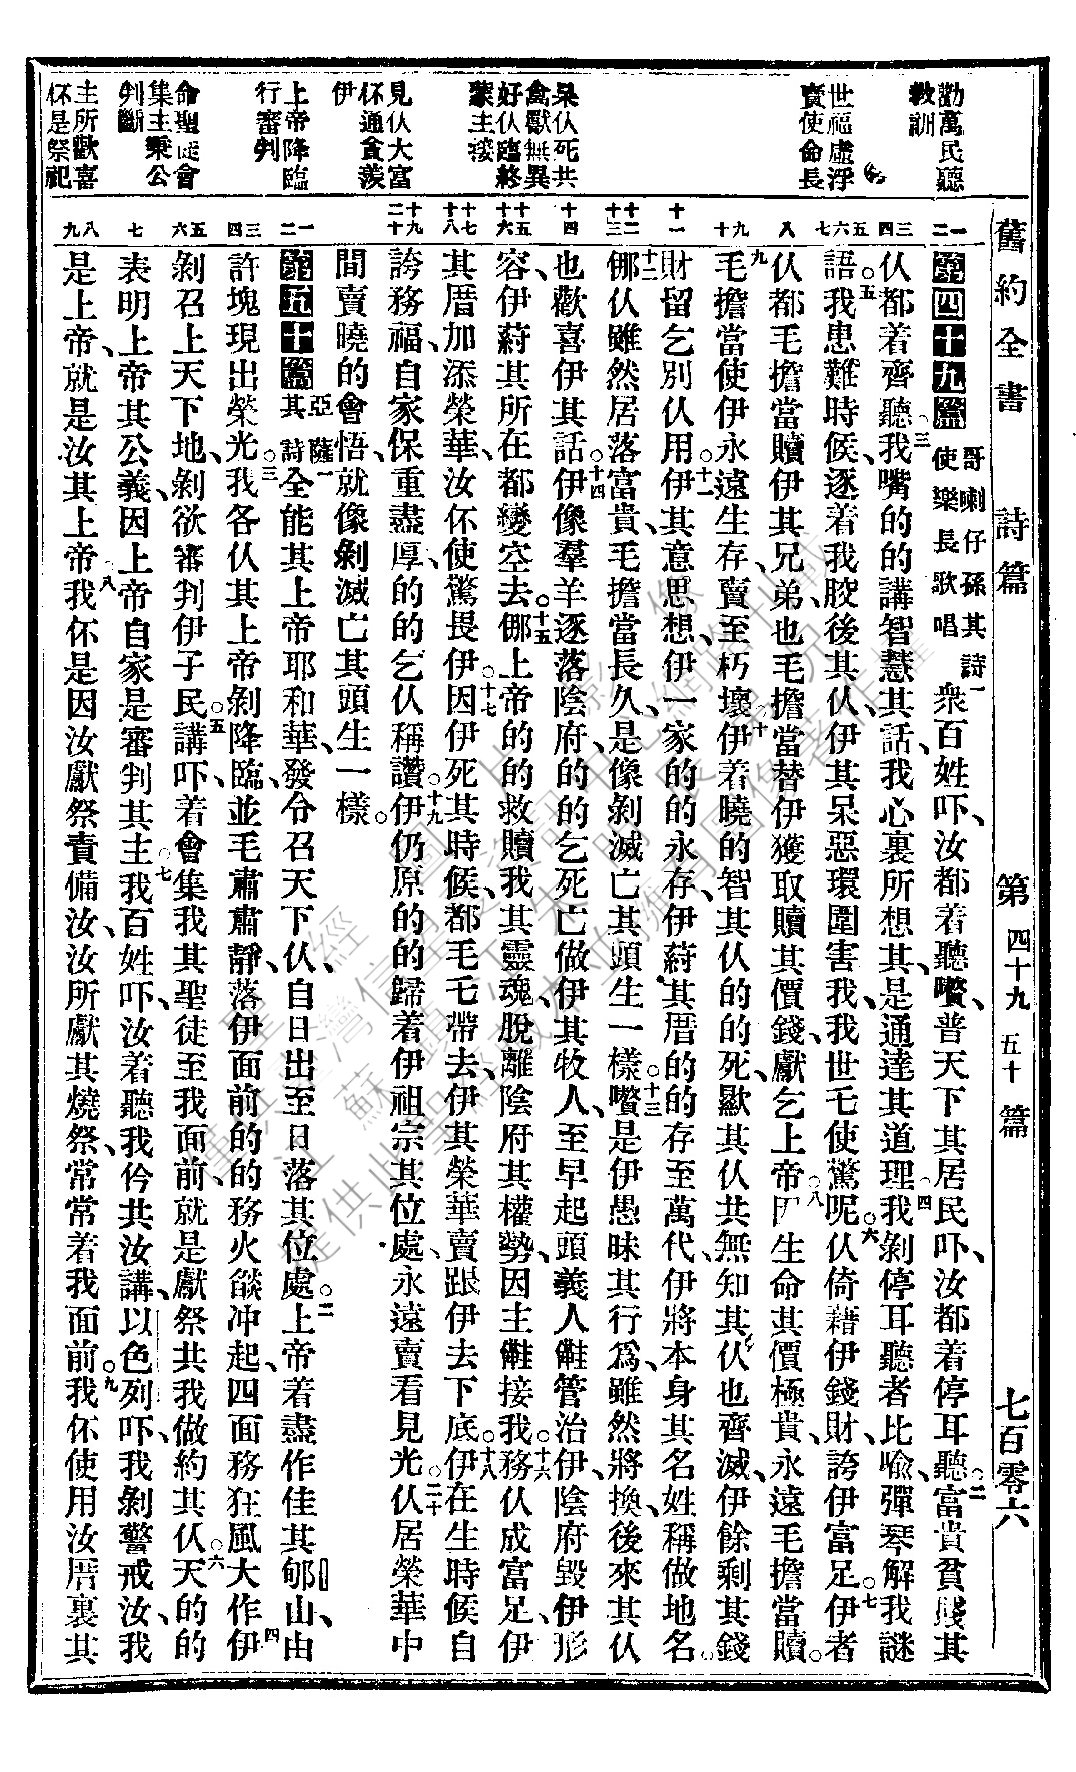 舊約全書 詩篇 第四十九 五十篇 七百零六
勸萬民聽
教訓
世福虛浮
賣使命長
呆仈死共
禽獸無異
好仈臨終
蒙主接
見仈大富
伓通貪羨
伊
上帝降臨
行審判
命聖徒會
集主秉公
判斷
主所歡喜
伓是祭祀
第四十九篇 哥喇仔孫其詩使樂長歌唱 一衆百姓吓、汝都着聽囋、普天下其居民吓、汝都着停耳聽、○二富貴貧賤其
仈都着齊聽、○三我嘴的的講智慧其話、我心裏所想其、是通達其道理、○四我剝停耳聽者比喩、彈琴解我謎
語。○五我患難時候、逐着我骹後其仈、伊其呆惡環圍害我、我世乇使驚呢。○六仈倚藉伊錢財、誇伊富足。○七伊者
仈都毛擔當贖伊其兄弟、也毛擔當替伊獲取贖其價錢、獻乞上帝、○八因生命其價極貴、永遠毛擔當贖。
○九毛擔當使伊永遠生存、賣至朽壞、○十伊着曉的智其仈的的死、歞其仈共無知其仈、也齊滅、伊餘剩其錢
財、留乞別仈用。○十一伊其意思想、伊一家的的永存、伊蔚其厝的的存至萬代、伊將本身其名、姓稱做地名。
○十二倻仈雖然居落富貴、毛擔當長久、是像剝滅亡其頭生一樣。○十三囋是伊愚昧其行爲、雖然將換後來其仈
也歡喜伊其話。○十四伊像羣羊逐落陰府、的的乞死亡做伊其牧人、至早起頭義人雝管治伊、陰府毀伊形
容、伊蔚其所在都變空去。○十五倻上帝的的救贖我其靈魂、脫離陰府其權勢、因主雝接我。○十六務仈成富足、伊
其厝加添榮華、汝伓使驚畏伊。○十七因伊死其時候、都毛乇帶去、伊其榮華賣跟伊去下底。○十八伊在生時候自
誇務福、自家保重盡厚、的的乞仈稱讚。○十九伊仍原的的歸着伊祖宗其位處、永遠賣看見光。○二十仈居榮華中
間賣曉的會悟、就像剝滅亡其頭生一樣。
第五十篇 亞薩其詩 一全能其上帝耶和華、發令召天下仈、自日出至日落其位處。○二上帝着盡作佳其郇山、由
許塊現出榮光。○三我各仈其上帝剝降臨、並毛肅肅靜、落伊面前的的務火燄冲起、四面務狂風大作、○四伊
剝召上天下地、剝欲審判伊子民、○五講吓、着會集我其聖徒至我面前、就是獻祭共我做約其仈、○六天的的
表明上帝其公義、因上帝自家是審判其主、○七我百姓吓、汝着聽、我伶共汝講、以色列吓、我剝警戒汝、我
是上帝、就是汝其上帝、○八我伓是因汝獻祭責備汝、汝所獻其燒祭、常常着我面前。○九我伓使用汝厝裏其